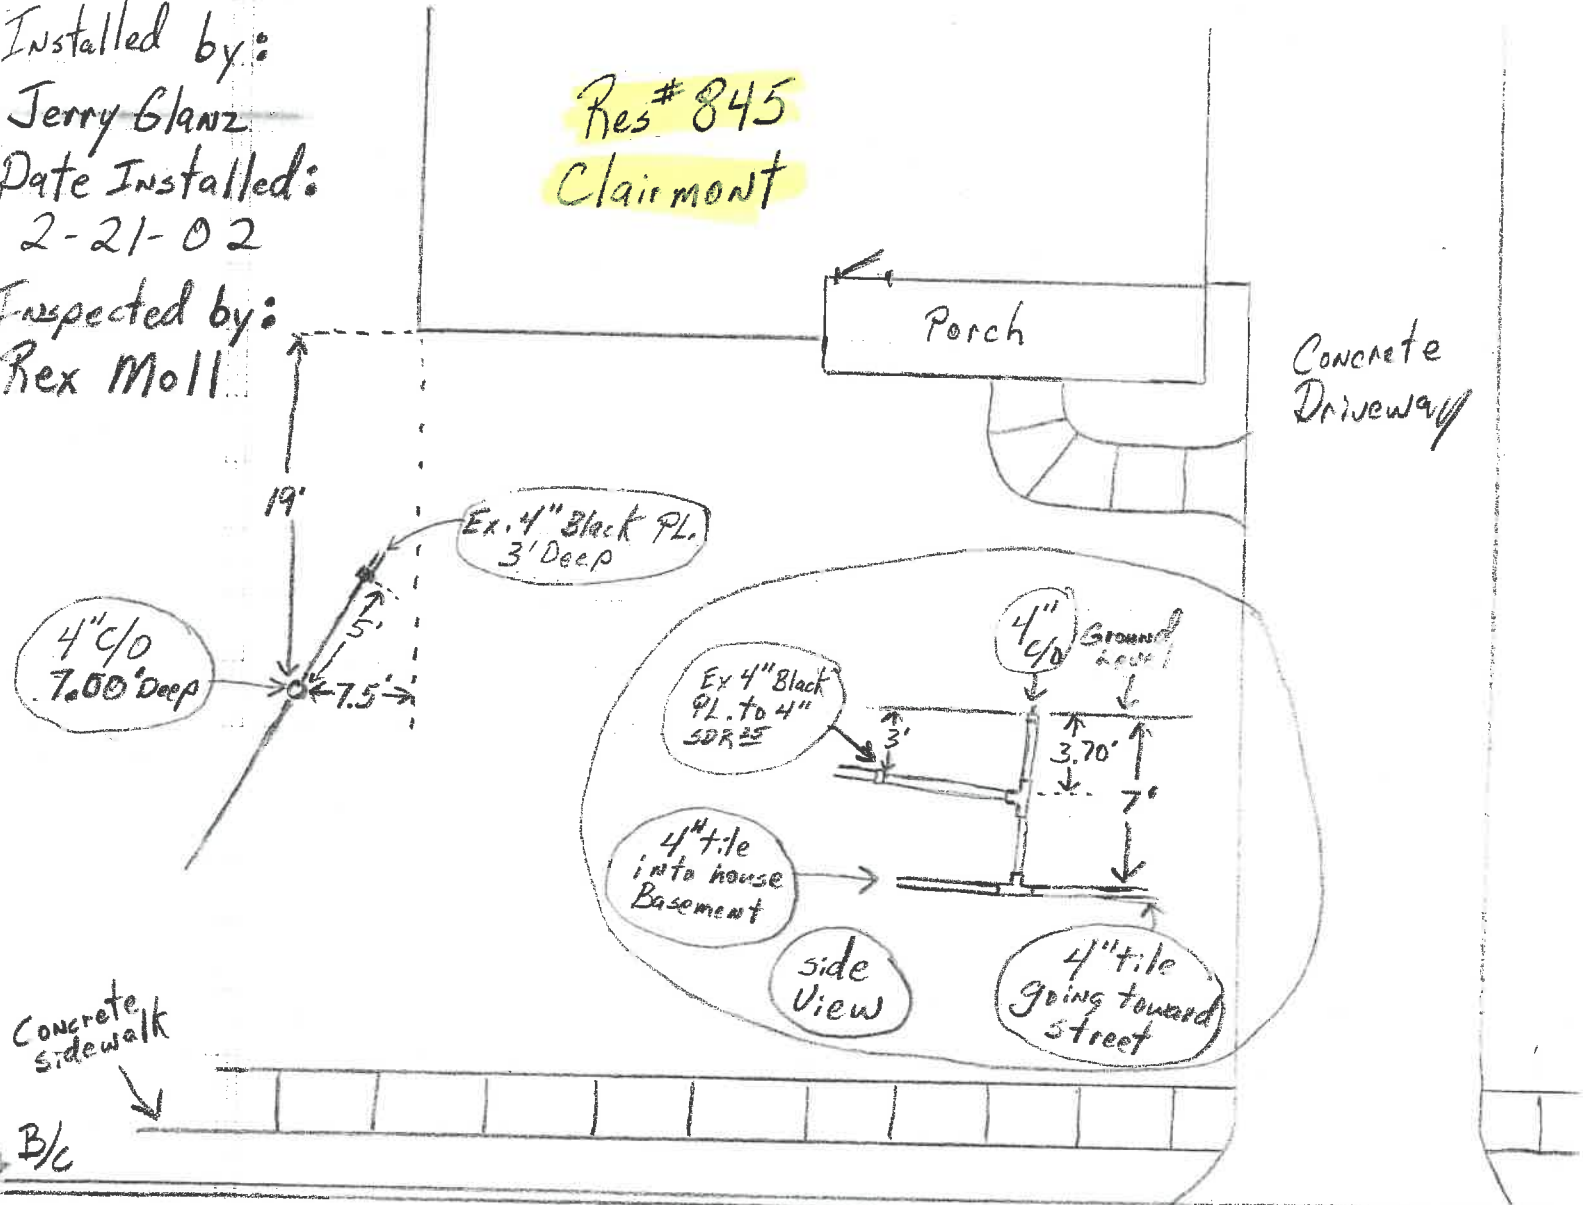 Installed by:
Jerry Glanz
Date Installed:
2-21-02
Inspected by:
Rex Moll
Res# 845
Clairmont
Porch
Concrete
Driveway
19'
Ex. 4" Black PL.
3' Deep
5'
4" C/O
7.00' Deep
7.5'
4"
C/O
Ground
Level
Ex 4" Black
PL. to 4"
SDR 35
3'
3.70'
7'
4" tile
into house
Basement
side
View
4" tile
going toward
street
Concrete
sidewalk
B/c